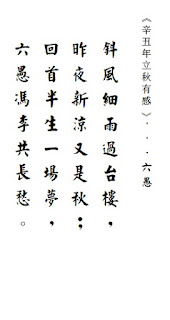 《辛丑年立秋有感》···六愚
斜風細雨過台樓，
昨夜新涼又是秋；
回首半生一場夢，
六愚馮李共長愁。